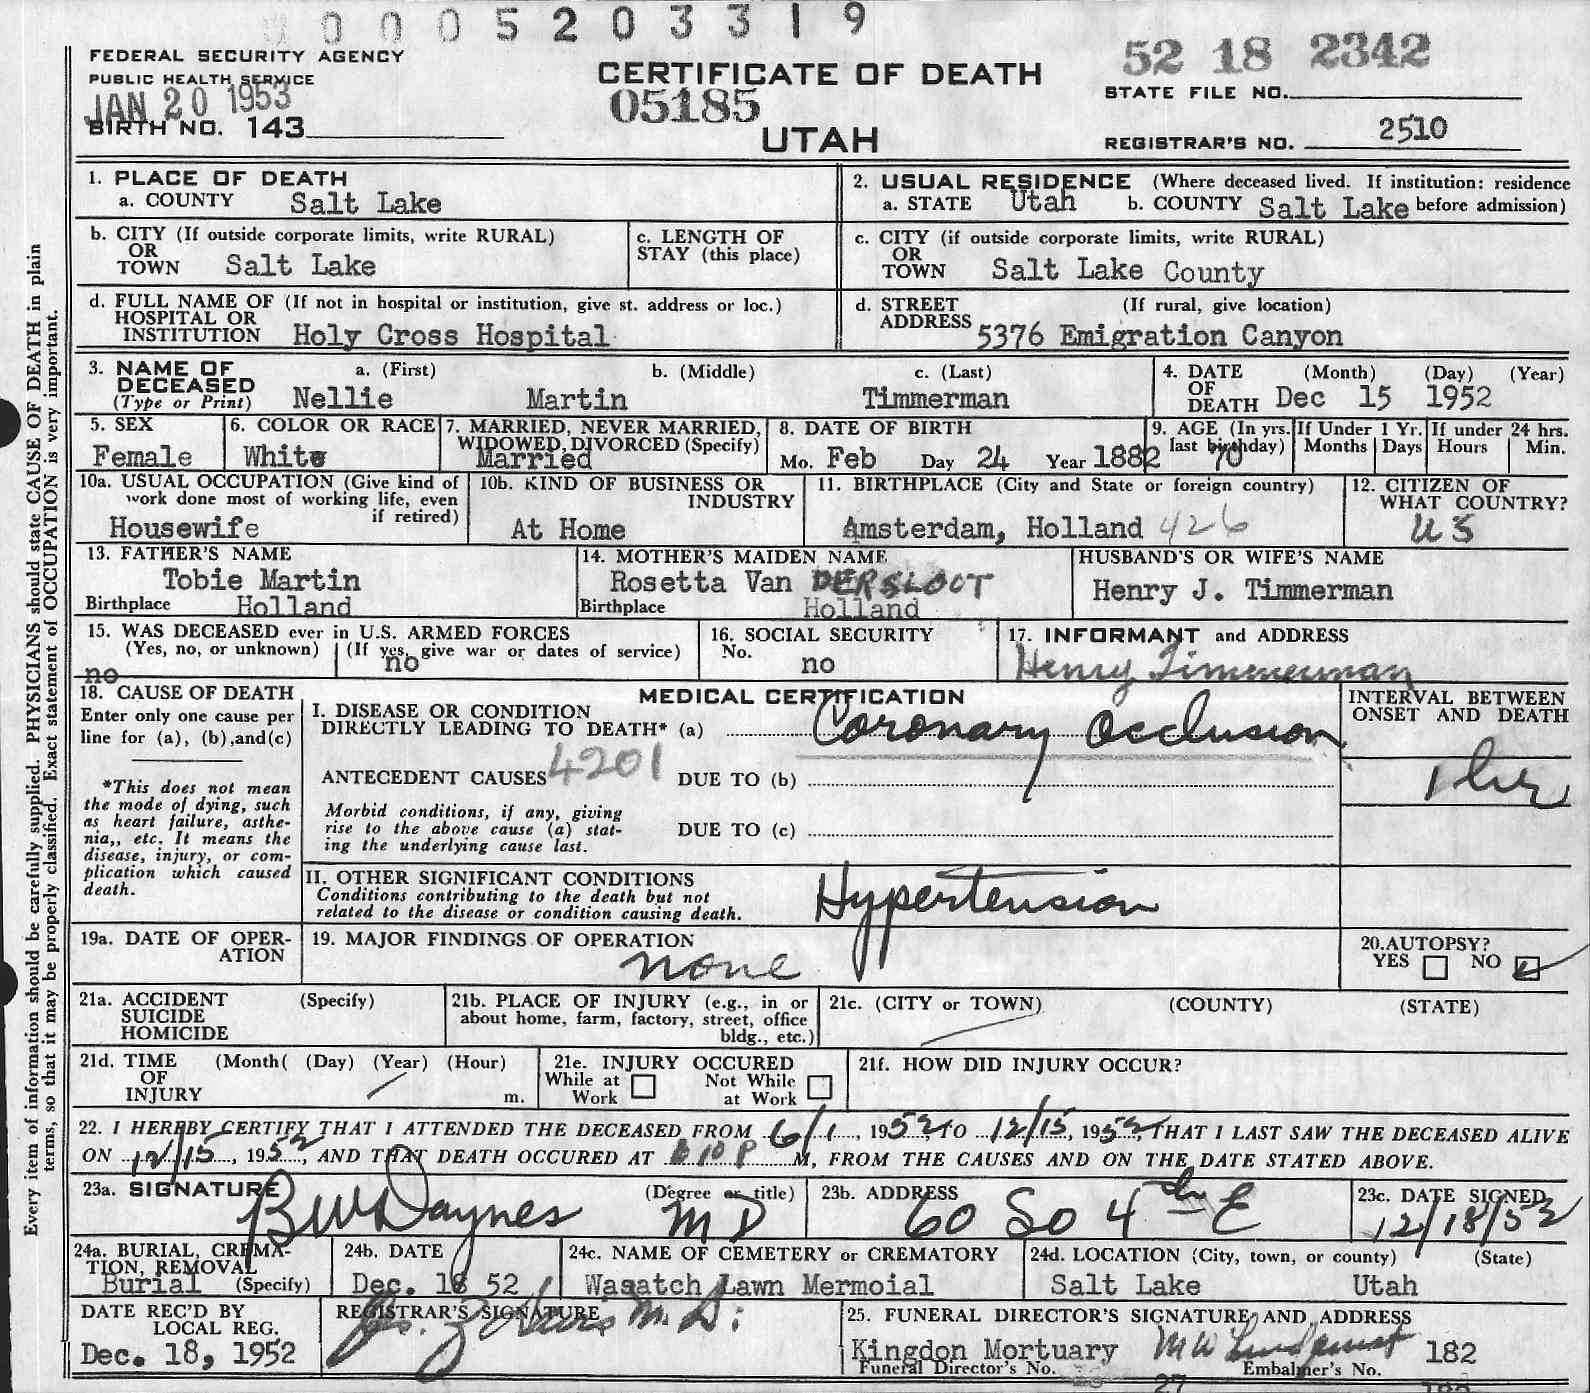 0 0 0 5 2 0 3 3 1 9
FEDERAL SECURITY AGENCY
PUBLIC HEALTH SERVICE
JAN 20 1953
BIRTH NO. 143
CERTIFICATE OF DEATH
05185
UTAH
52 18 2342
STATE FILE NO.
REGISTRAR'S NO. 2510
Every item of information should be carefully supplied. PHYSICIANS should state CAUSE OF DEATH in plain
terms, so that it may be properly classified. Exact statement of OCCUPATION is very important.
1. PLACE OF DEATH
a. COUNTY Salt Lake
2. USUAL RESIDENCE (Where deceased lived. If institution: residence
a. STATE Utah b. COUNTY Salt Lake before admission)
b. CITY (If outside corporate limits, write RURAL)
OR
TOWN Salt Lake
c. LENGTH OF
STAY (this place)
c. CITY (if outside corporate limits, write RURAL)
OR
TOWN Salt Lake County
d. FULL NAME OF (If not in hospital or institution, give st. address or loc.)
HOSPITAL OR
INSTITUTION Holy Cross Hospital
d. STREET (If rural, give location)
ADDRESS 5376 Emigration Canyon
3. NAME OF a. (First) b. (Middle) c. (Last)
DECEASED
(Type or Print) Nellie Martin Timmerman
4. DATE (Month) (Day) (Year)
OF
DEATH Dec 15 1952
5. SEX
Female
6. COLOR OR RACE
White
7. MARRIED, NEVER MARRIED,
WIDOWED, DIVORCED (Specify)
Married
8. DATE OF BIRTH
Mo. Feb Day 24 Year 1882
9. AGE (In yrs.
last birthday) 70
If Under 1 Yr.
Months Days
If under 24 hrs.
Hours Min.
10a. USUAL OCCUPATION (Give kind of
work done most of working life, even
if retired)
Housewife
10b. KIND OF BUSINESS OR
INDUSTRY
At Home
11. BIRTHPLACE (City and State or foreign country)
Amsterdam, Holland 426
12. CITIZEN OF
WHAT COUNTRY?
US
13. FATHER'S NAME
Tobie Martin
Birthplace Holland
14. MOTHER'S MAIDEN NAME
Rosetta Van DERSLOOT
Birthplace Holland
HUSBAND'S OR WIFE'S NAME
Henry J. Timmerman
15. WAS DECEASED ever in U.S. ARMED FORCES
(Yes, no, or unknown) (If yes, give war or dates of service)
no no
16. SOCIAL SECURITY
No. no
17. INFORMANT and ADDRESS
Henry Timmerman
18. CAUSE OF DEATH
Enter only one cause per
line for (a), (b), and (c)
*This does not mean
the mode of dying, such
as heart failure, asthe-
nia,, etc. It means the
disease, injury, or com-
plication which caused
death.
MEDICAL CERTIFICATION
I. DISEASE OR CONDITION
DIRECTLY LEADING TO DEATH* (a) Coronary Occlusion
ANTECEDENT CAUSES 4201 DUE TO (b)
Morbid conditions, if any, giving
rise to the above cause (a) stat-
ing the underlying cause last.
DUE TO (c)
INTERVAL BETWEEN
ONSET AND DEATH
1 hr
II. OTHER SIGNIFICANT CONDITIONS
Conditions contributing to the death but not
related to the disease or condition causing death.
Hypertension
19a. DATE OF OPER-
ATION
19. MAJOR FINDINGS OF OPERATION
none
20. AUTOPSY?
YES NO
21a. ACCIDENT (Specify)
SUICIDE
HOMICIDE
21b. PLACE OF INJURY (e.g., in or
about home, farm, factory, street, office
bldg., etc.)
21c. (CITY or TOWN) (COUNTY) (STATE)
21d. TIME (Month( (Day) (Year) (Hour)
OF
INJURY m.
21e. INJURY OCCURED
While at Work Not While at Work
21f. HOW DID INJURY OCCUR?
22. I HEREBY CERTIFY THAT I ATTENDED THE DECEASED FROM 6/1, 1952, TO 12/15, 1952, THAT I LAST SAW THE DECEASED ALIVE
ON 12/15, 1952, AND THAT DEATH OCCURED AT 10 P M, FROM THE CAUSES AND ON THE DATE STATED ABOVE.
23a. SIGNATURE (Degree or title)
BW Daynes MD
23b. ADDRESS
60 So 4th E
23c. DATE SIGNED
12/18/52
24a. BURIAL, CREMA-
TION, REMOVAL
Burial (Specify)
24b. DATE
Dec. 18 52
24c. NAME OF CEMETERY or CREMATORY
Wasatch Lawn Mermoial
24d. LOCATION (City, town, or county) (State)
Salt Lake Utah
DATE REC'D BY
LOCAL REG.
Dec. 18, 1952
REGISTRAR'S SIGNATURE
M.D.
25. FUNERAL DIRECTOR'S SIGNATURE AND ADDRESS
Kingdon Mortuary 182
Funeral Director's No. Embalmer's No.
27